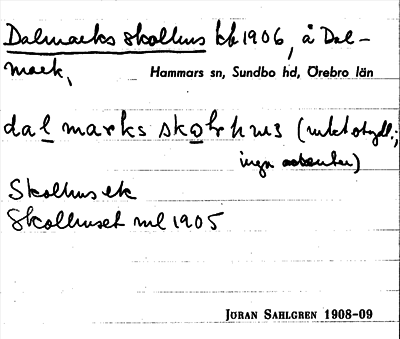 Dalmarks skolhus kk 1906, å Dal-
mark,
Hammars sn, Sundbo hd, Örebro län
dalmarks skolhus (
inga
Skolhus ek
Skolhuset ml 1905
JÖRAN SAHLGREN 1908-09